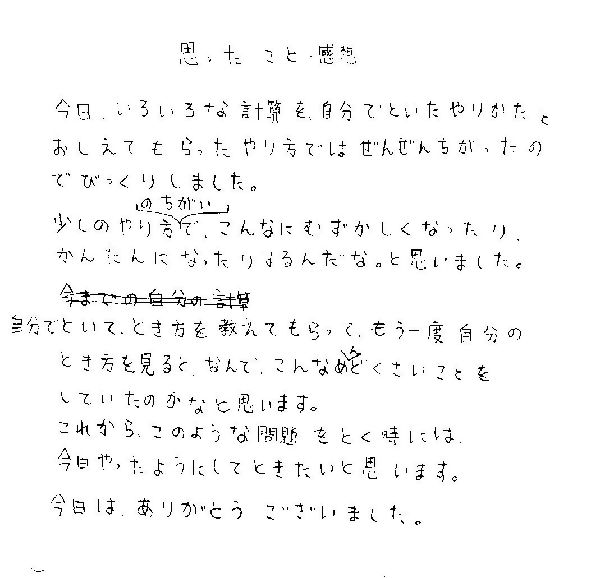 思ったこと・感想
今日、いろいろな計算を、自分でといたやりかたと
おしえてもらったやり方ではぜんぜんちがったの
でびっくりしました。
のちがい
少しのやり方で、こんなにむずかしくなったり、
かんたんになったりするんだな。と思いました。
今までの自分の計算
自分でといて、とき方を教えてもらって、もう一度自分の
とき方を見ると、なんで、こんなめんどくさいことを
していたのかなと思います。
これから、このような問題をとく時には、
今日やったようにしてときたいと思います。
今日は、ありがとうございました。